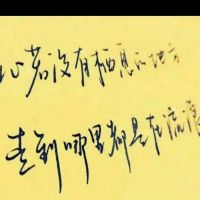 心若没有栖息的地方
走到哪里都是在流浪